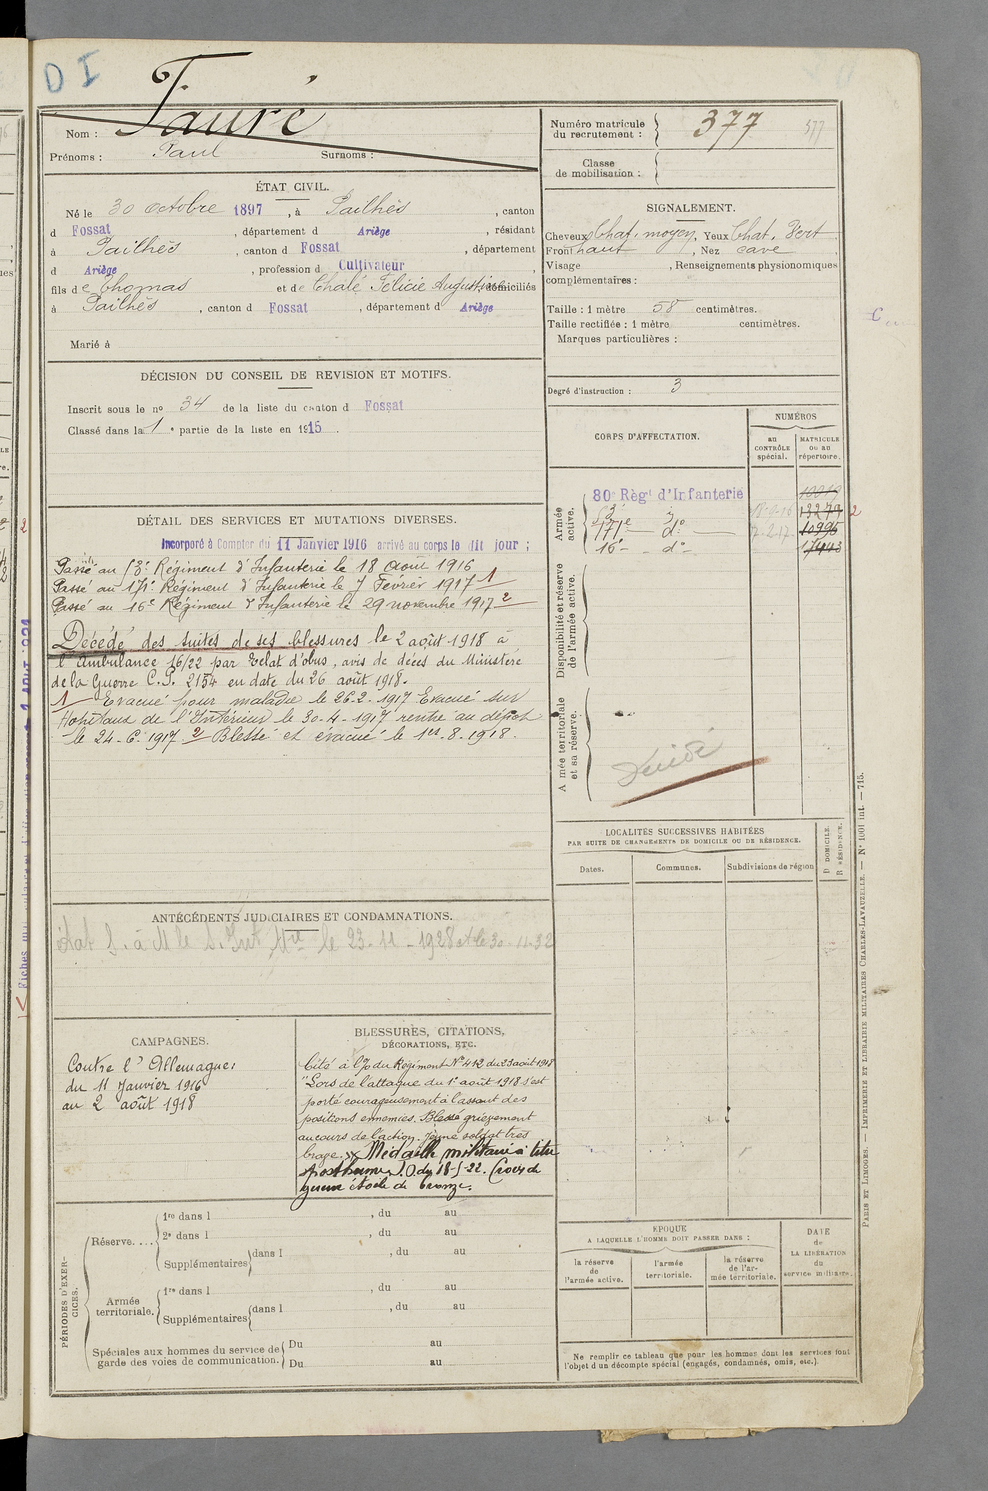 D I
Nom : Fauré
Prénoms : Paul Surnoms :
Numéro matricule
du recrutement : 377
377
Classe
de mobilisation :
ÉTAT CIVIL.
Né le 30 octobre 1897 , à Pailhès , canton
d Fossat , département d Ariège , résidant
à Pailhès , canton d Fossat , département
d Ariège , profession d Cultivateur ,
fils de Thomas et de Chalé Félicie Augustine domiciliés
à Pailhès , canton d Fossat , département d Ariège
Marié à
SIGNALEMENT.
Cheveux Chat. moyen, Yeux Chat. Vert
Front haut , Nez cave ,
Visage , Renseignements physionomiques
complémentaires :
Taille : 1 mètre 58 centimètres.
Taille rectifiée : 1 mètre centimètres.
Marques particulières :
Degré d'instruction : 3
DÉCISION DU CONSEIL DE REVISION ET MOTIFS.
Inscrit sous le no 34 de la liste du canton d Fossat
Classé dans la 1 e partie de la liste en 1915 .
CORPS D'AFFECTATION.
NUMÉROS
au
CONTRÔLE
spécial.
MATRICULE
OU AU
répertoire.
Armée
active.
80e Régt d'Infanterie
13279 2
171e do 7-2-17 10995
16e do
Disponibilité et réserve
de l'armée active.
Armée territoriale
et sa réserve.
DÉTAIL DES SERVICES ET MUTATIONS DIVERSES.
Incorporé à Compter du 11 Janvier 1916 arrivé au corps le dit jour ;
Passé au 13e Régiment d'Infanterie le 18 Août 1916
Passé au 171e Régiment d'Infanterie le 7 Février 1917 1
Passé au 16e Régiment d'Infanterie le 29 novembre 1917 2
Décédé des suites de ses blessures le 2 août 1918 à
l'Ambulance 16/22 par Eclat d'obus, avis de décès du Ministère
de la Guerre C.P. 2154 en date du 26 août 1918.
1 Evacué pour maladie le 26.2.1917 Evacué sur
Hopitaux de l'Intérieur le 30-4-1917 rentré au dépôt
le 24-6-1917 2 Blessé et évacué le 1er.8.1918.
LOCALITÉS SUCCESSIVES HABITÉES
PAR SUITE DE CHANGEMENTS DE DOMICILE OU DE RÉSIDENCE.
Dates.
Communes.
Subdivisions de région
D DOMICILE.
R RÉSIDENCE.
ANTÉCÉDENTS JUDICIAIRES ET CONDAMNATIONS.
le 23-11-1928 et le 30-11-32
CAMPAGNES.
Contre l'Allemagne :
du 11 Janvier 1916
au 2 août 1918
BLESSURES, CITATIONS,
DÉCORATIONS, ETC.
Cité à l'O/ du Régiment No 412 du 23 août 1918
"Lors de l'attaque du 1er août 1918 s'est
porté courageusement à l'assaut des
positions ennemies. Blessé grièvement
au cours de l'action. Jeune soldat très
brave. Médaille militaire à titre
posthume J.O du 18-5-22. Croix de
guerre étoile de bronze.
PÉRIODES D'EXER-
CICES.
Réserve....
1re dans l , du au
2e dans l , du au
Supplémentaires dans l , du au
Armée
territoriale.
1re dans l , du au
Supplémentaires dans l , du au
Spéciales aux hommes du service de
garde des voies de communication.
Du au
Du au
ÉPOQUE
A LAQUELLE L'HOMME DOIT PASSER DANS :
DATE
de
LA LIBÉRATION
du
service militaire.
la réserve
de
l'armée active.
l'armée
territoriale.
la réserve
de l'ar-
mée territoriale.
Ne remplir ce tableau que pour les hommes dont les services font
l'objet d'un décompte spécial (engagés, condamnés, omis, etc.).
PARIS ET LIMOGES. — IMPRIMERIE ET LIBRAIRIE MILITAIRES CHARLES-LAVAUZELLE. — No 1001 int. — 715.